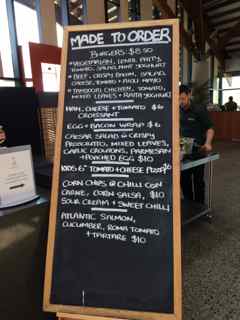 MADE TO ORDER
BURGERS $8.50
* VEGETARIAN, LENTIL PATTY,
TOMATO, SALAD, MINT YOGHURT
* BEEF, CRISPY BACON, SALAD,
CHEESE, TOMATO + AIOLI MAYO
* TANDOORI CHICKEN, TOMATO,
MIXED LEAVES + RAITA YOGHURT
HAM, CHEESE + TOMATO $6
CROISSANT
EGG + BACON WRAP $6
CAESAR SALAD & CRISPY
PROSCIUTTO, MIXED LEAVES,
GARLIC CROUTONS, PARMESAN
+ POACHED EGG $10
KIDS 6" TOMATO + CHEESE PIZZA $6
CORN CHIPS & CHILLI CON
CARNE, CORN SALSA, $10
SOUR CREAM + SWEET CHILLI
ATLANTIC SALMON,
CUCUMBER, ROMA TOMATO
+ TARTARE $10